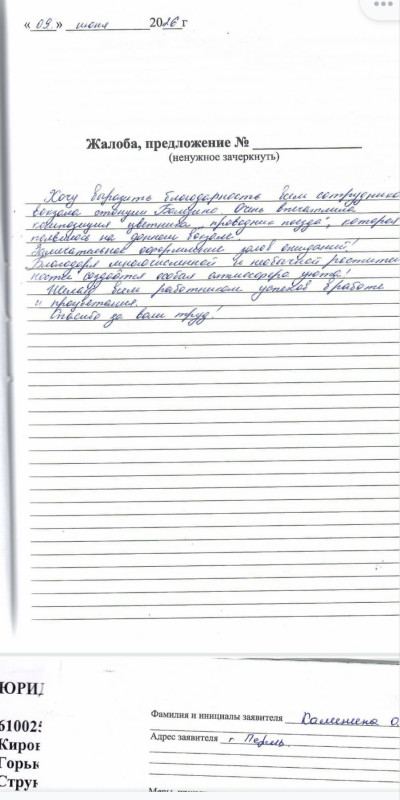 « 09 » июня 2026 г
Жалоба, предложение № ________
(ненужное зачеркнуть)
Хочу выразить благодарность всем сотрудника
вокзала станции Очень впечатлила
композиция цветника „проводник поезда", которая
появилась на данном вокзале.
Замечательное оформление залов ожидания!
Благодаря многочисленной и необычной растител
ности создаётся особая атмосфера уюта!
Желаю всем работникам успехов в работе
и процветания.
Спасибо за ваш труд!
ЮРИД
61002
Киров
Горьк
Струн
Фамилия и инициалы заявителя О.
Адрес заявителя г Пермь.